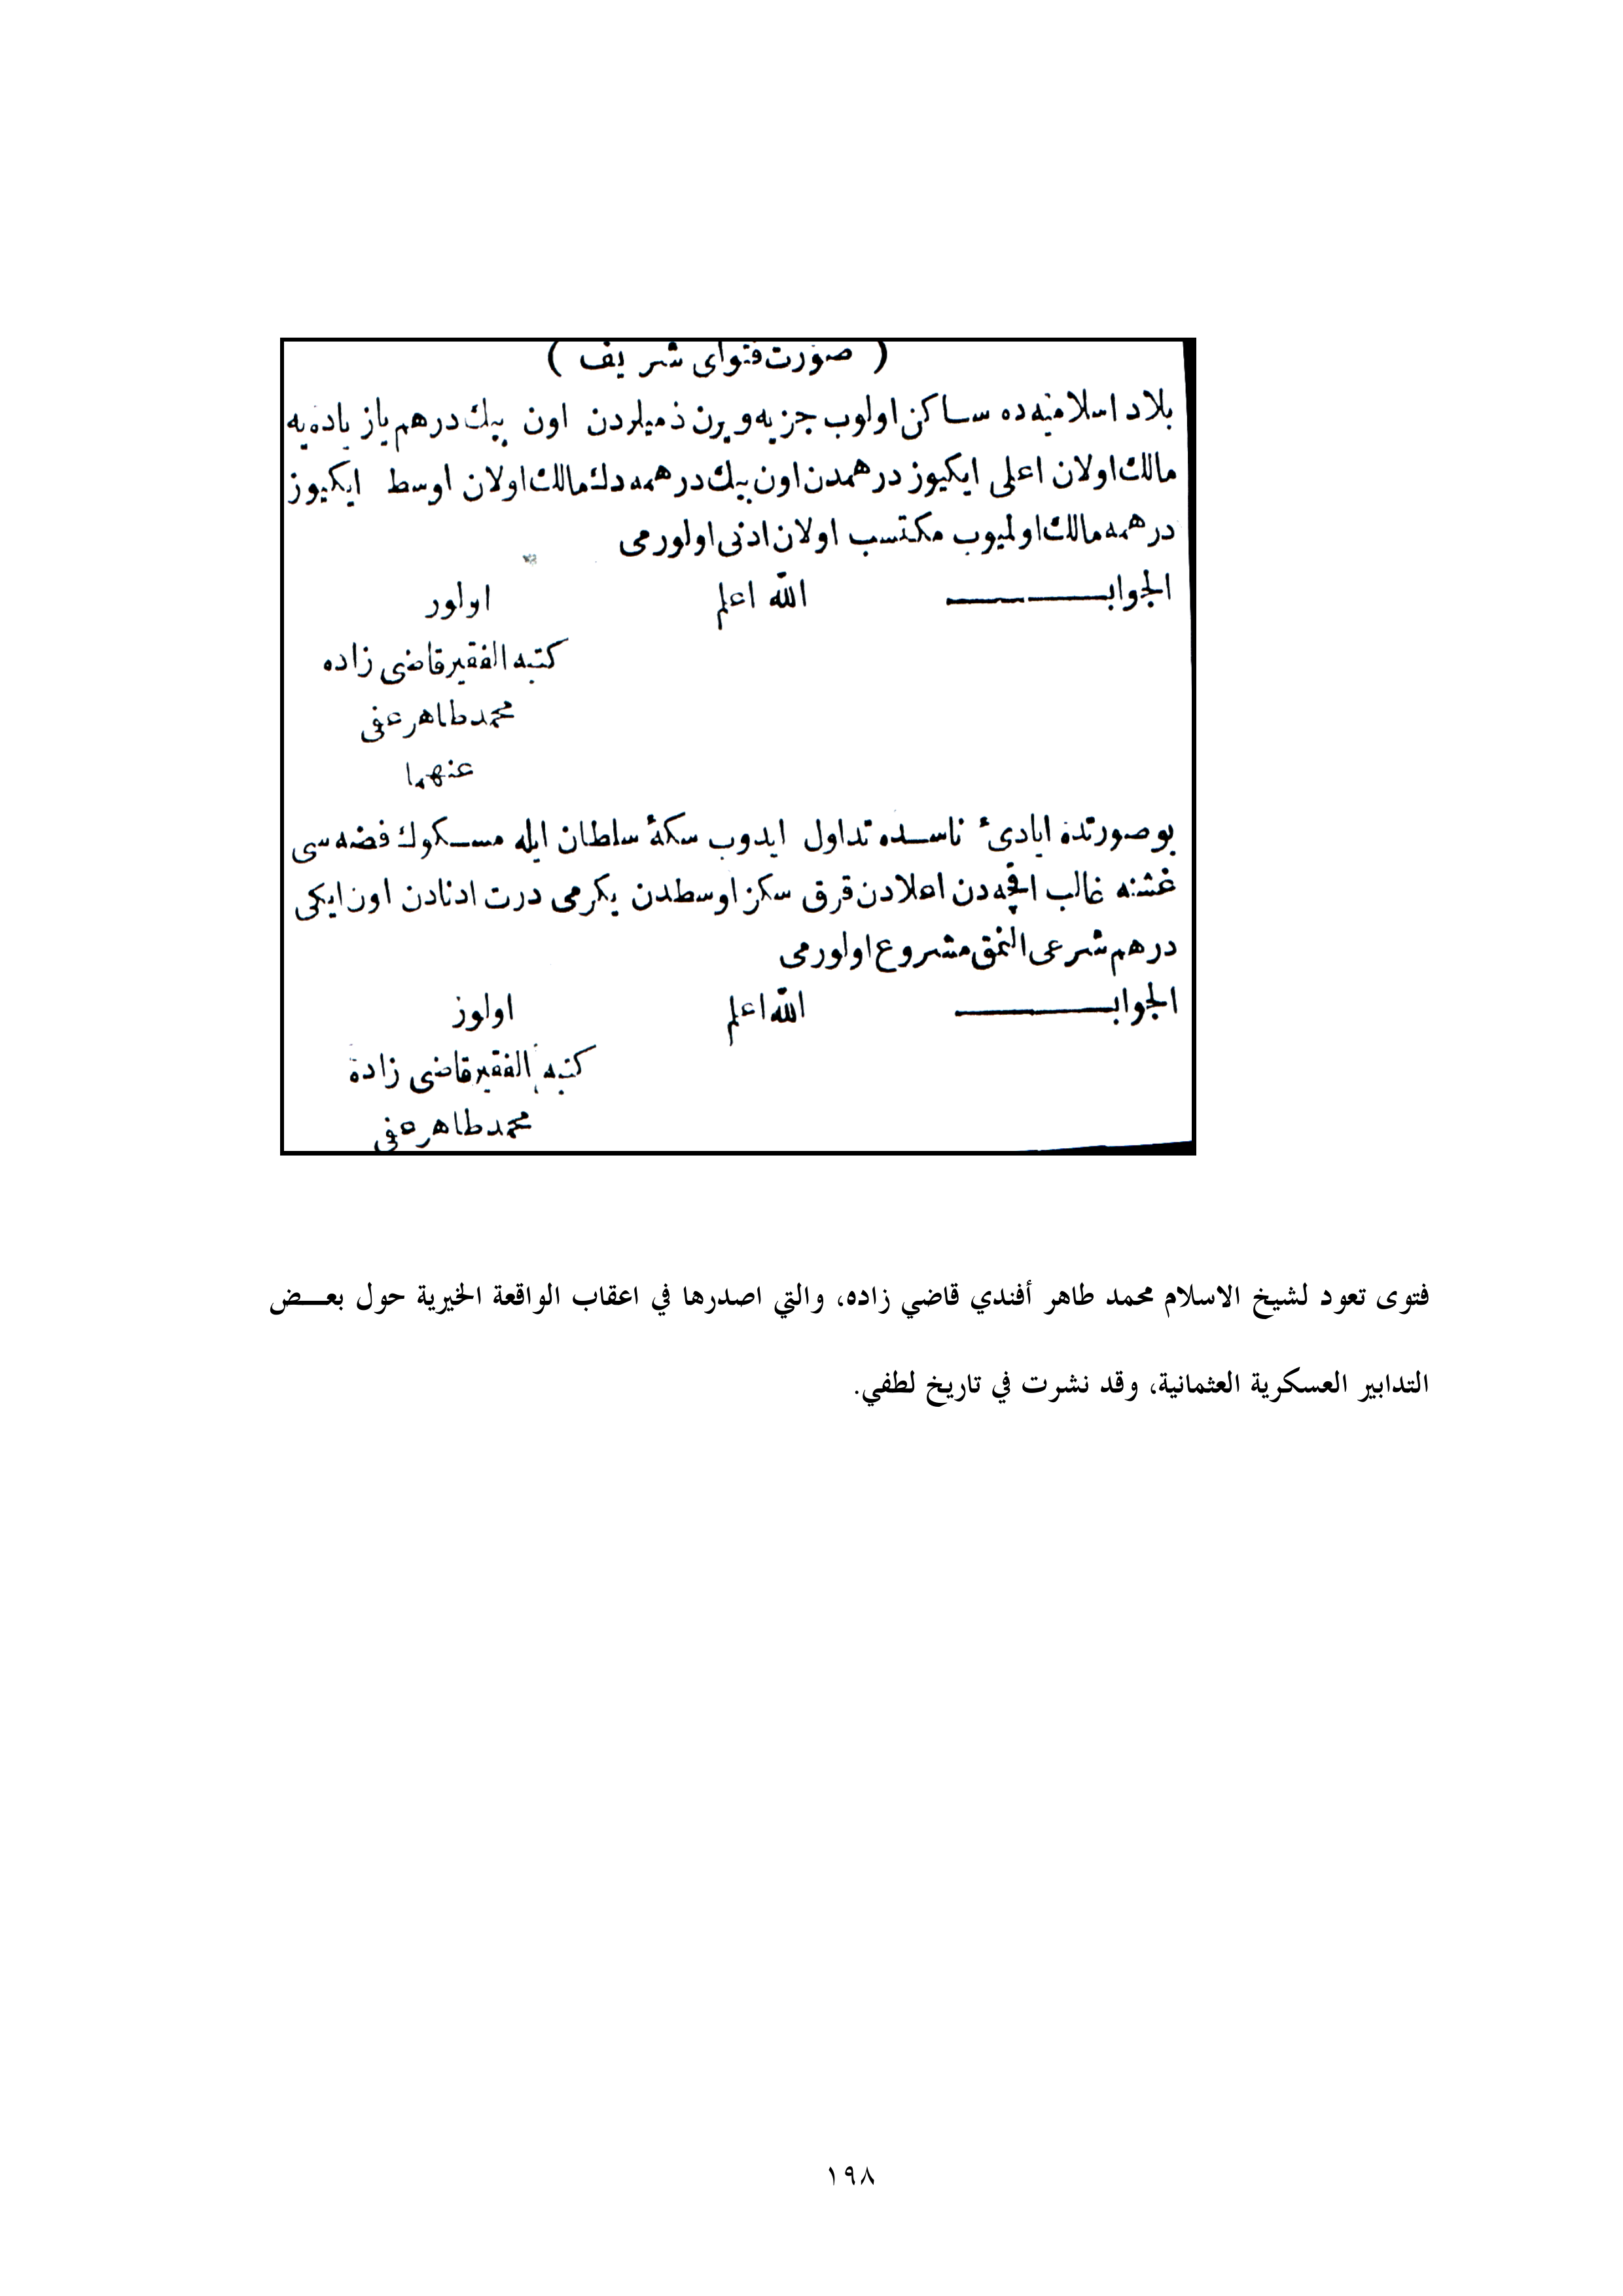 ( صورت فتوای شریف )
بلاد اسلامیه ده ساکن اولوب جزیه ویرن ذمیلردن اون بیك درهم یاز یاده یه
مالك اولان اعلی ایکیوز درهمدن اون بیك درهمه دك مالك اولان اوسط ایکیوز
درهمه مالك اولمیوب مکتسب اولان ادنی اولورمی
الجواب الله اعلم اولور
کتبه الفقیر قاضی زاده
محمد طاهر عفی
عنهما
بو صورتده ایادیٔ ناسده تداول ایدوب سکهٔ سلطان ایله مسکوك فضه سی
غشنه غالب اقچه دن اعلادن قرق سکز اوسطدن یکرمی درت ادنادن اون ایکی
درهم شرعی النمق مشروع اولورمی
الجواب الله اعلم اولوز
کتبه الفقیر قاضی زاده
محمد طاهر عفی
فتوى تعود لشيخ الاسلام محمد طاهر أفندي قاضي زاده، والتي اصدرها في اعقاب الواقعة الخيرية حول بعـــض
التدابير العسكرية العثمانية، وقد نشرت في تاريخ لطفي.
١٩٨